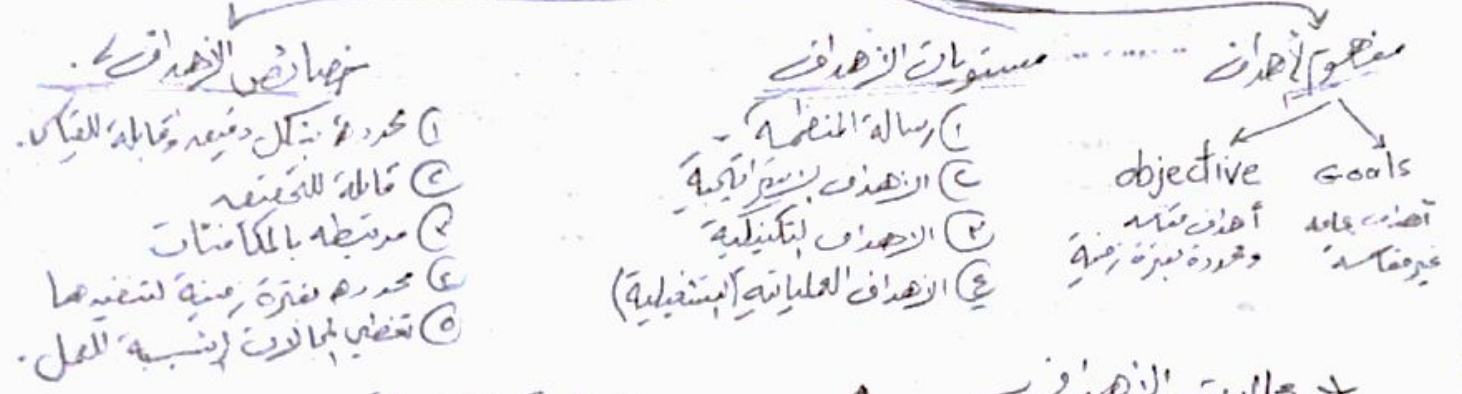 مفهوم الأهداف
Goals
أهداف عامه
غير مقاسه
objective
أهداف مقاسه
ومحددة بفترة زمنية
مستويات الأهداف
١) رسالة المنظمة
٢) الأهداف الاستراتيجية
٣) الأهداف التكتيكية
٤) الأهداف العملياتيه (التشغيلية)
خصائص الأهداف
١) محددة بشكل دقيق وقابلة للقياس.
٢) قابلة للتحقيق
٣) مرتبطه بالمكافئات
٤) محدده بفترة زمنية لتنفيذها
٥) تغطي المجالات الرئيسية للعمل.
الأهداف